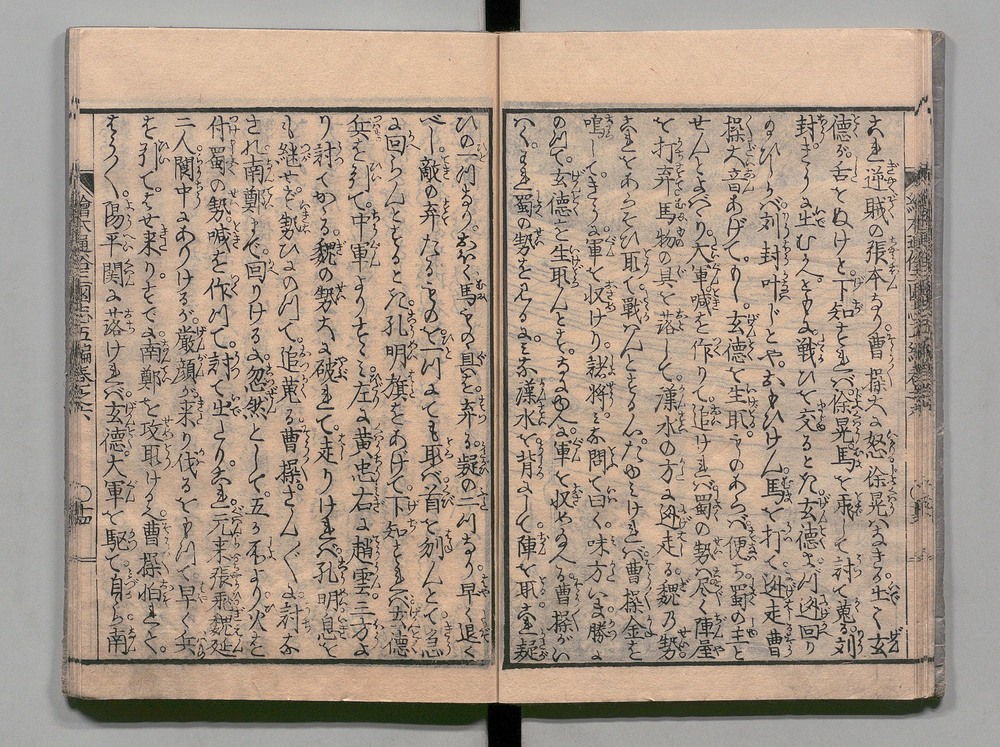 これ逆賊の張本なり曹操大に怒徐晃はなきか出て玄
徳が舌をぬけと下知すれバ徐晃馬を乗して討て蒐る刘
封さうなく出むかへしかも戦ひを交るとき玄徳さつて迯回り
刘封叶ハじとやおもひけん馬を打て迯走曹
操大音あげてもし玄徳を生取ものあらバ便ち蜀の主と
せんとよべり大軍喊を作りて追けれバ蜀の勢尽く陣屋
を打弃馬物の具を落して漢水の方へ迯走る魏乃勢
これをあらそひ取て戦ハんともせざれバ曹操金を
鳴してきうに軍を収けり諸将みな問て曰く味方いま勝に
のつて玄徳を生取んとするになにゆへ軍を収め玉ふ曹操がい
はくこれ蜀の勢を見るにみな漢水を背にして陣を取これ疑
ひの一つなりおほく馬ものゝ具を弃る疑の二つなり早く退く
べし敵の弃たるものを一つにても取バ首を刎んとて急
に回らんとするとき孔明旗をあげて下知すれバ玄徳
兵を引て中軍よりすゝみ左に黄忠右に趙雲三方よ
り討てかゝる魏の勢大に破れて走りけれバ孔明息を
も継せず勢ひにのつて追蒐る曹操さんざんに討な
され南鄭まで回りけるに忽然として五か所より火を
付蜀の勢喊を作つて討て出たりこれ元来張飛魏延
二人閬中にありけるが厳顔が来り代るをもつて早く兵
を引てはせ来りすでに南鄭を攻取ける曹操怕れまど
ひ
陽平関に落けれバ玄德大軍を駆て自ら南
繪本通俗三國志五編巻之六
十四